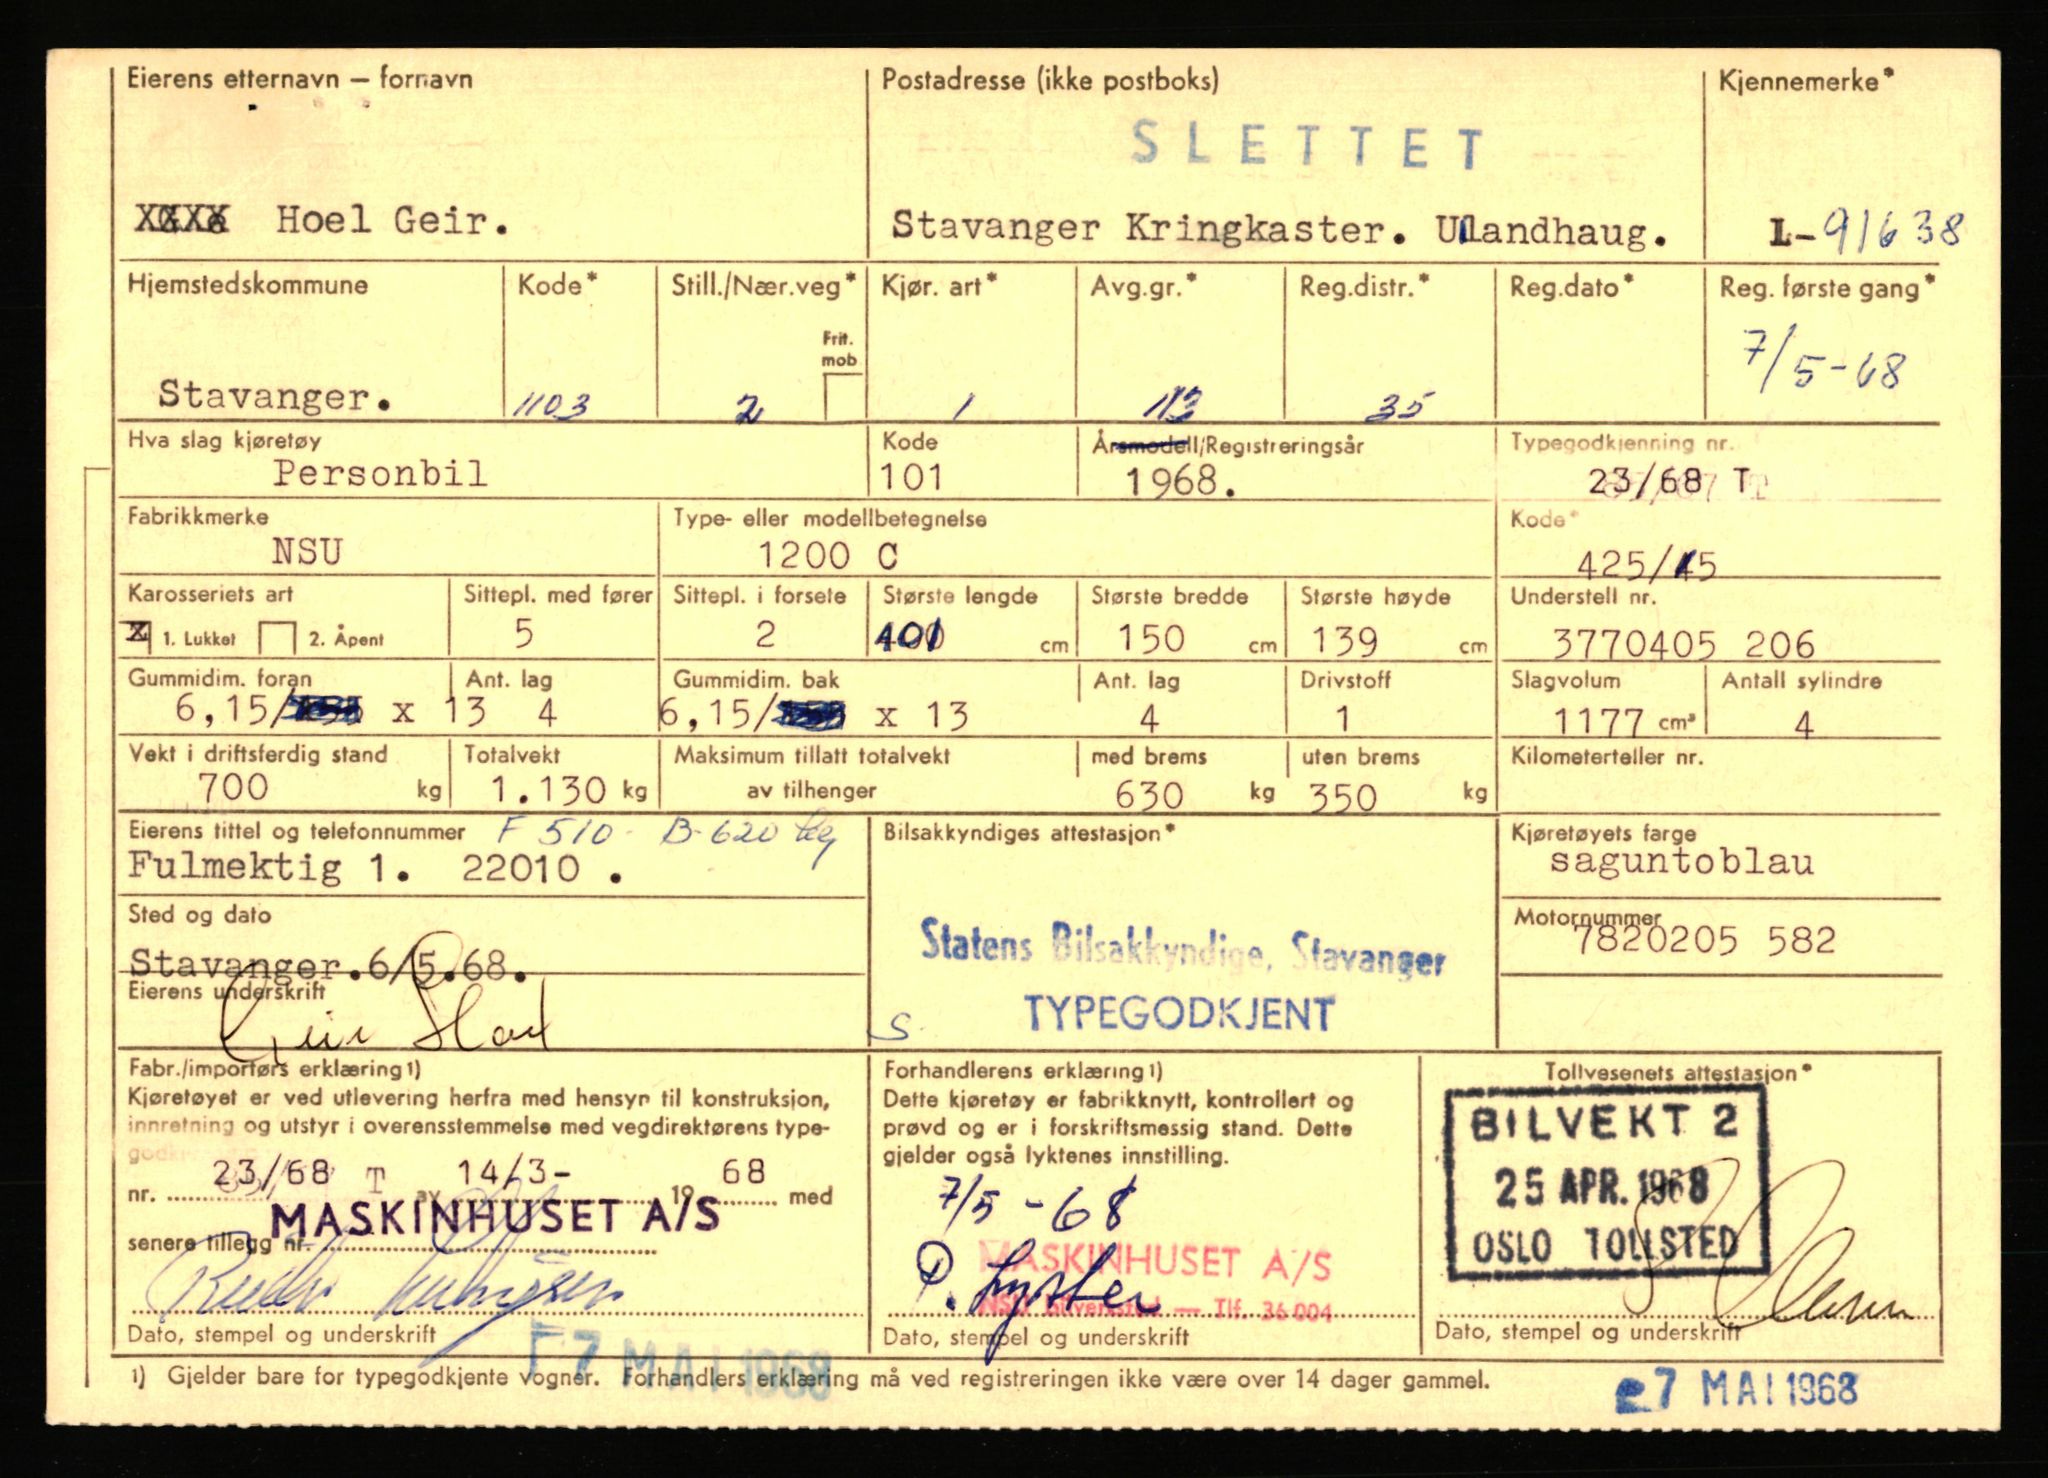 Eierens etternavn — fornavn
Postadresse (ikke postboks)
Kjennemerke*
SLETTET
Hoel Geir.
Stavanger Kringkaster. Ullandhaug.
L-91638
Hjemstedskommune
Kode*
Still./Nær.veg*
Kjør. art*
Avg.gr.*
Reg.distr.*
Reg.dato*
Reg. første gang*
Frit. mob
7/5-68
Stavanger.
1103
2
1
113
35
Hva slag kjøretøy
Kode
Årsmodell/Registreringsår
Typegodkjenning nr.
Personbil
101
1968.
23/68 T
Fabrikkmerke
Type- eller modellbetegnelse
Kode*
NSU
1200 C
425/15
Karosseriets art
Sittepl. med fører
Sittepl. i forsete
Største lengde
Største bredde
Største høyde
Understell nr.
X 1. Lukket
2. Åpent
5
2
401 cm
150 cm
139 cm
3770405 206
Gummidim. foran
Ant. lag
Gummidim. bak
Ant. lag
Drivstoff
Slagvolum
Antall sylindre
6,15/ x 13
4
6,15/ x 13
4
1
1177 cm³
4
Vekt i driftsferdig stand
Totalvekt
Maksimum tillatt totalvekt
med brems
uten brems
Kilometerteller nr.
700 kg
1.130 kg
av tilhenger
630 kg
350 kg
Eierens tittel og telefonnummer
F 510 - B-620 kg
Bilsakkyndiges attestasjon*
Kjøretøyets farge
Fulmektig 1. 22010 .
saguntoblau
Sted og dato
Motornummer
Stavanger.6/5.68.
Statens Bilsakkyndige, Stavanger
7820205 582
Eierens underskrift
TYPEGODKJENT
Geir Hoel
S
Fabr./importørs erklæring1)
Kjøretøyet er ved utlevering herfra med hensyn til konstruksjon,
innretning og utstyr i overensstemmelse med vegdirektørens type-
nr. 23/68 T av 14/3- 19 68 med
MASKINHUSET A/S
senere tillegg nr.
Dato, stempel og underskrift
Forhandlerens erklæring1)
Dette kjøretøy er fabrikknytt, kontrollert og
prøvd og er i forskriftsmessig stand. Dette
gjelder også lyktenes innstilling.
7/5-68
MASKINHUSET A/S
NSU Bilverksted — Tlf. 36 004
Dato, stempel og underskrift
Tollvesenets attestasjon*
BILVEKT 2
25 APR. 1968
OSLO TOLLSTED
Dato, stempel og underskrift
7 MAI 1968
1) Gjelder bare for typegodkjente vogner. Forhandlers erklæring må ved registreringen ikke være over 14 dager gammel.
7 MAI 1968